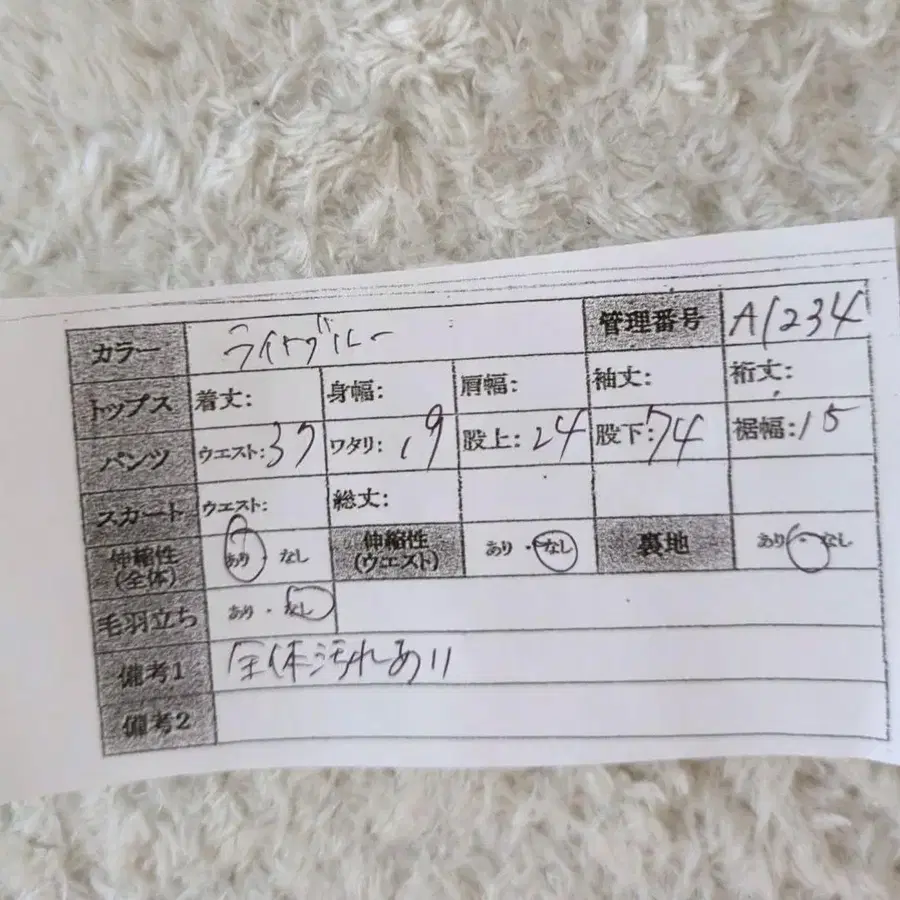 カラー ライトブルー 管理番号 A1234
トップス 着丈: 身幅: 肩幅: 袖丈: 裄丈:
パンツ ウエスト:37 ワタリ:19 股上:24 股下:74 裾幅:15
スカート ウエスト: 総丈:
伸縮性(全体) あり・なし 伸縮性(ウエスト) あり・なし 裏地 あり・なし
毛羽立ち あり・なし
備考1 全体汚れあり
備考2